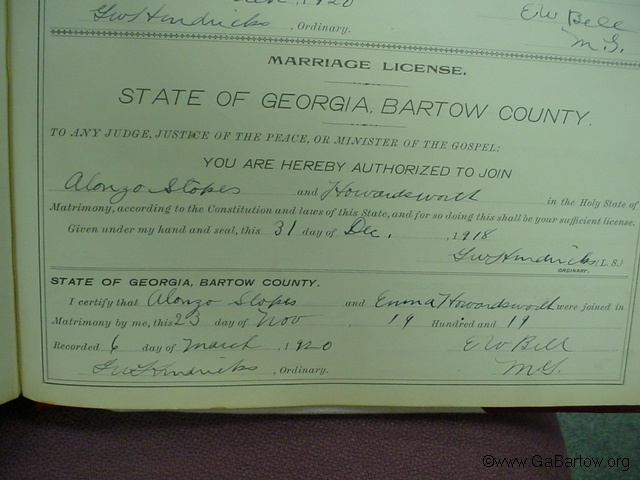 1920
Gw Hendricks, Ordinary. E W Bell
M.G.
MARRIAGE LICENSE.
STATE OF GEORGIA, BARTOW COUNTY.
TO ANY JUDGE, JUSTICE OF THE PEACE, OR MINISTER OF THE GOSPEL:
YOU ARE HEREBY AUTHORIZED TO JOIN
Alonzo Stokes and Howardsworth in the Holy State of
Matrimony, according to the Constitution and laws of this State, and for so doing this shall be your sufficient license.
Given under my hand and seal, this 31 day of Dec. , 1918
Gw Hendricks (L. S.)
ORDINARY.
STATE OF GEORGIA, BARTOW COUNTY.
I certify that Alonzo Stokes and Emma Howardsworth were joined in
Matrimony by me, this 23 day of Nov , 19 Hundred and 19
Recorded 6 day of March , 1920 E W Bell
Gw Hendricks , Ordinary. M.G.
©www.GaBartow.org